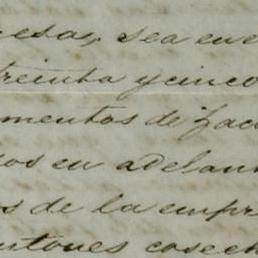 esas, sea en e
treinta y cinco
mentos de zac
os en adelan
s de la empr
ntones cosech